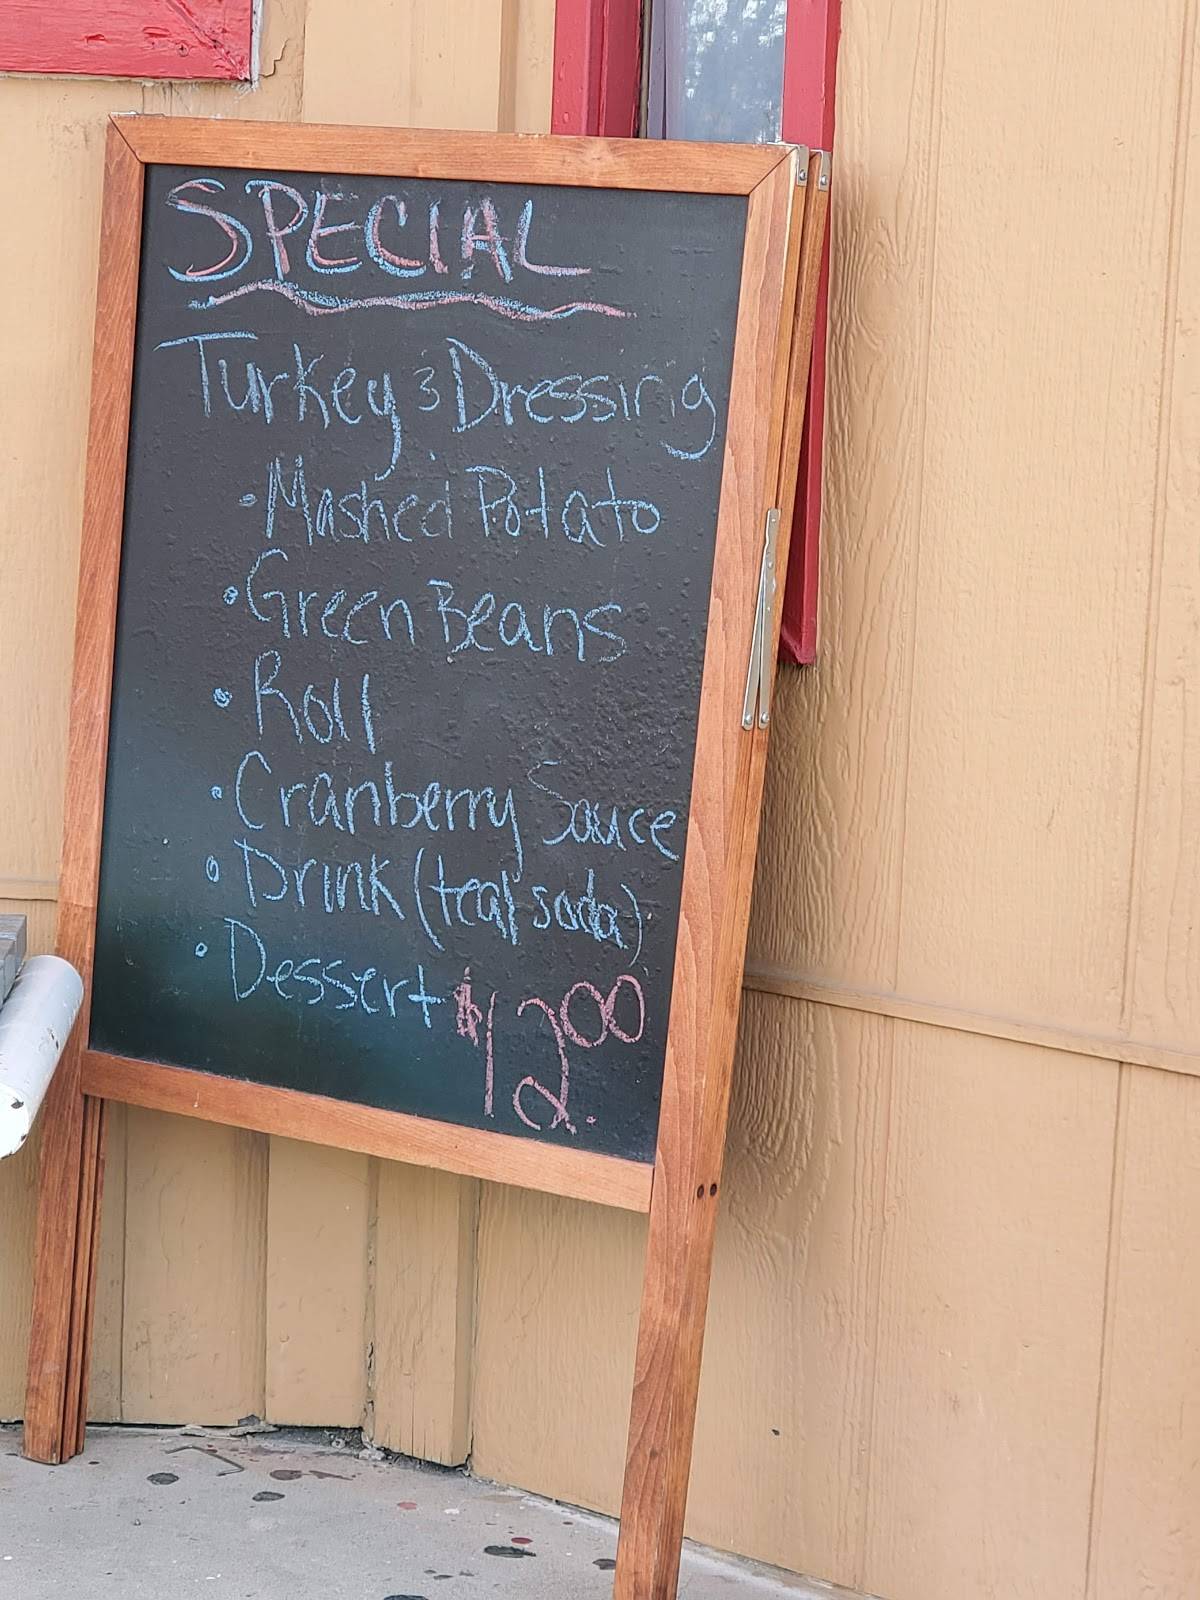 SPECIAL
Turkey & Dressing
• Mashed Potato
• Green Beans
• Roll
• Cranberry Sauce
• Drink (tea/soda)
• Dessert
$12.00